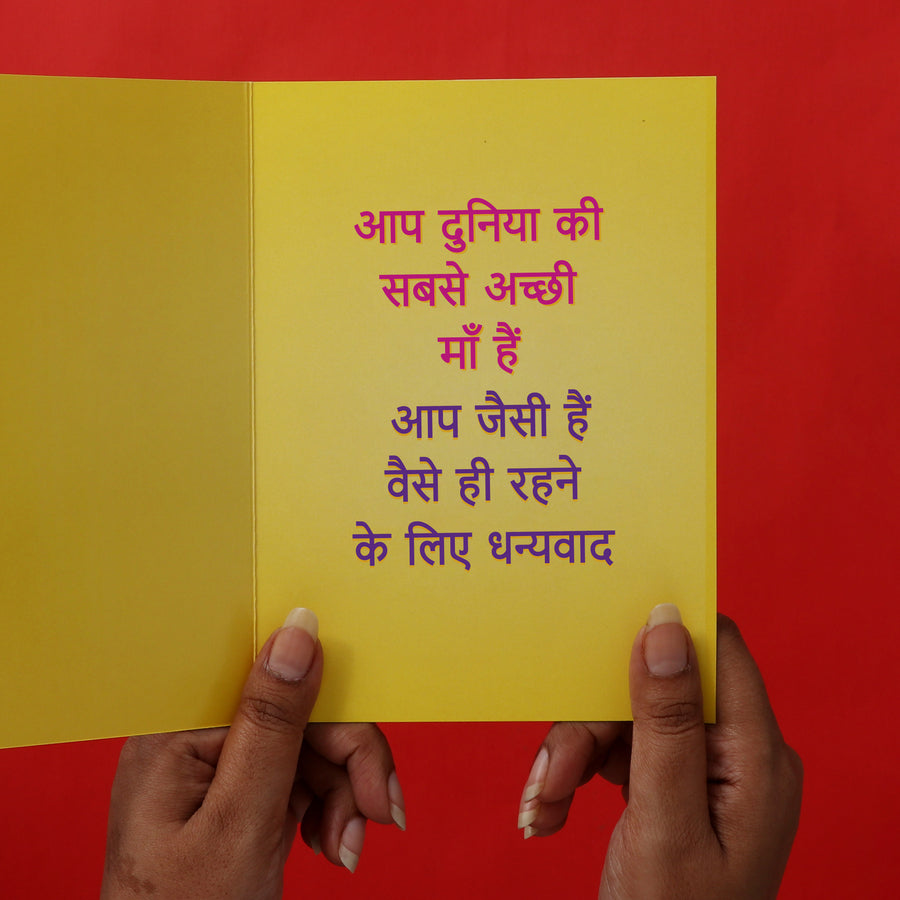 आप दुनिया की
सबसे अच्छी
माँ हैं
आप जैसी हैं
वैसे ही रहने
के लिए धन्यवाद